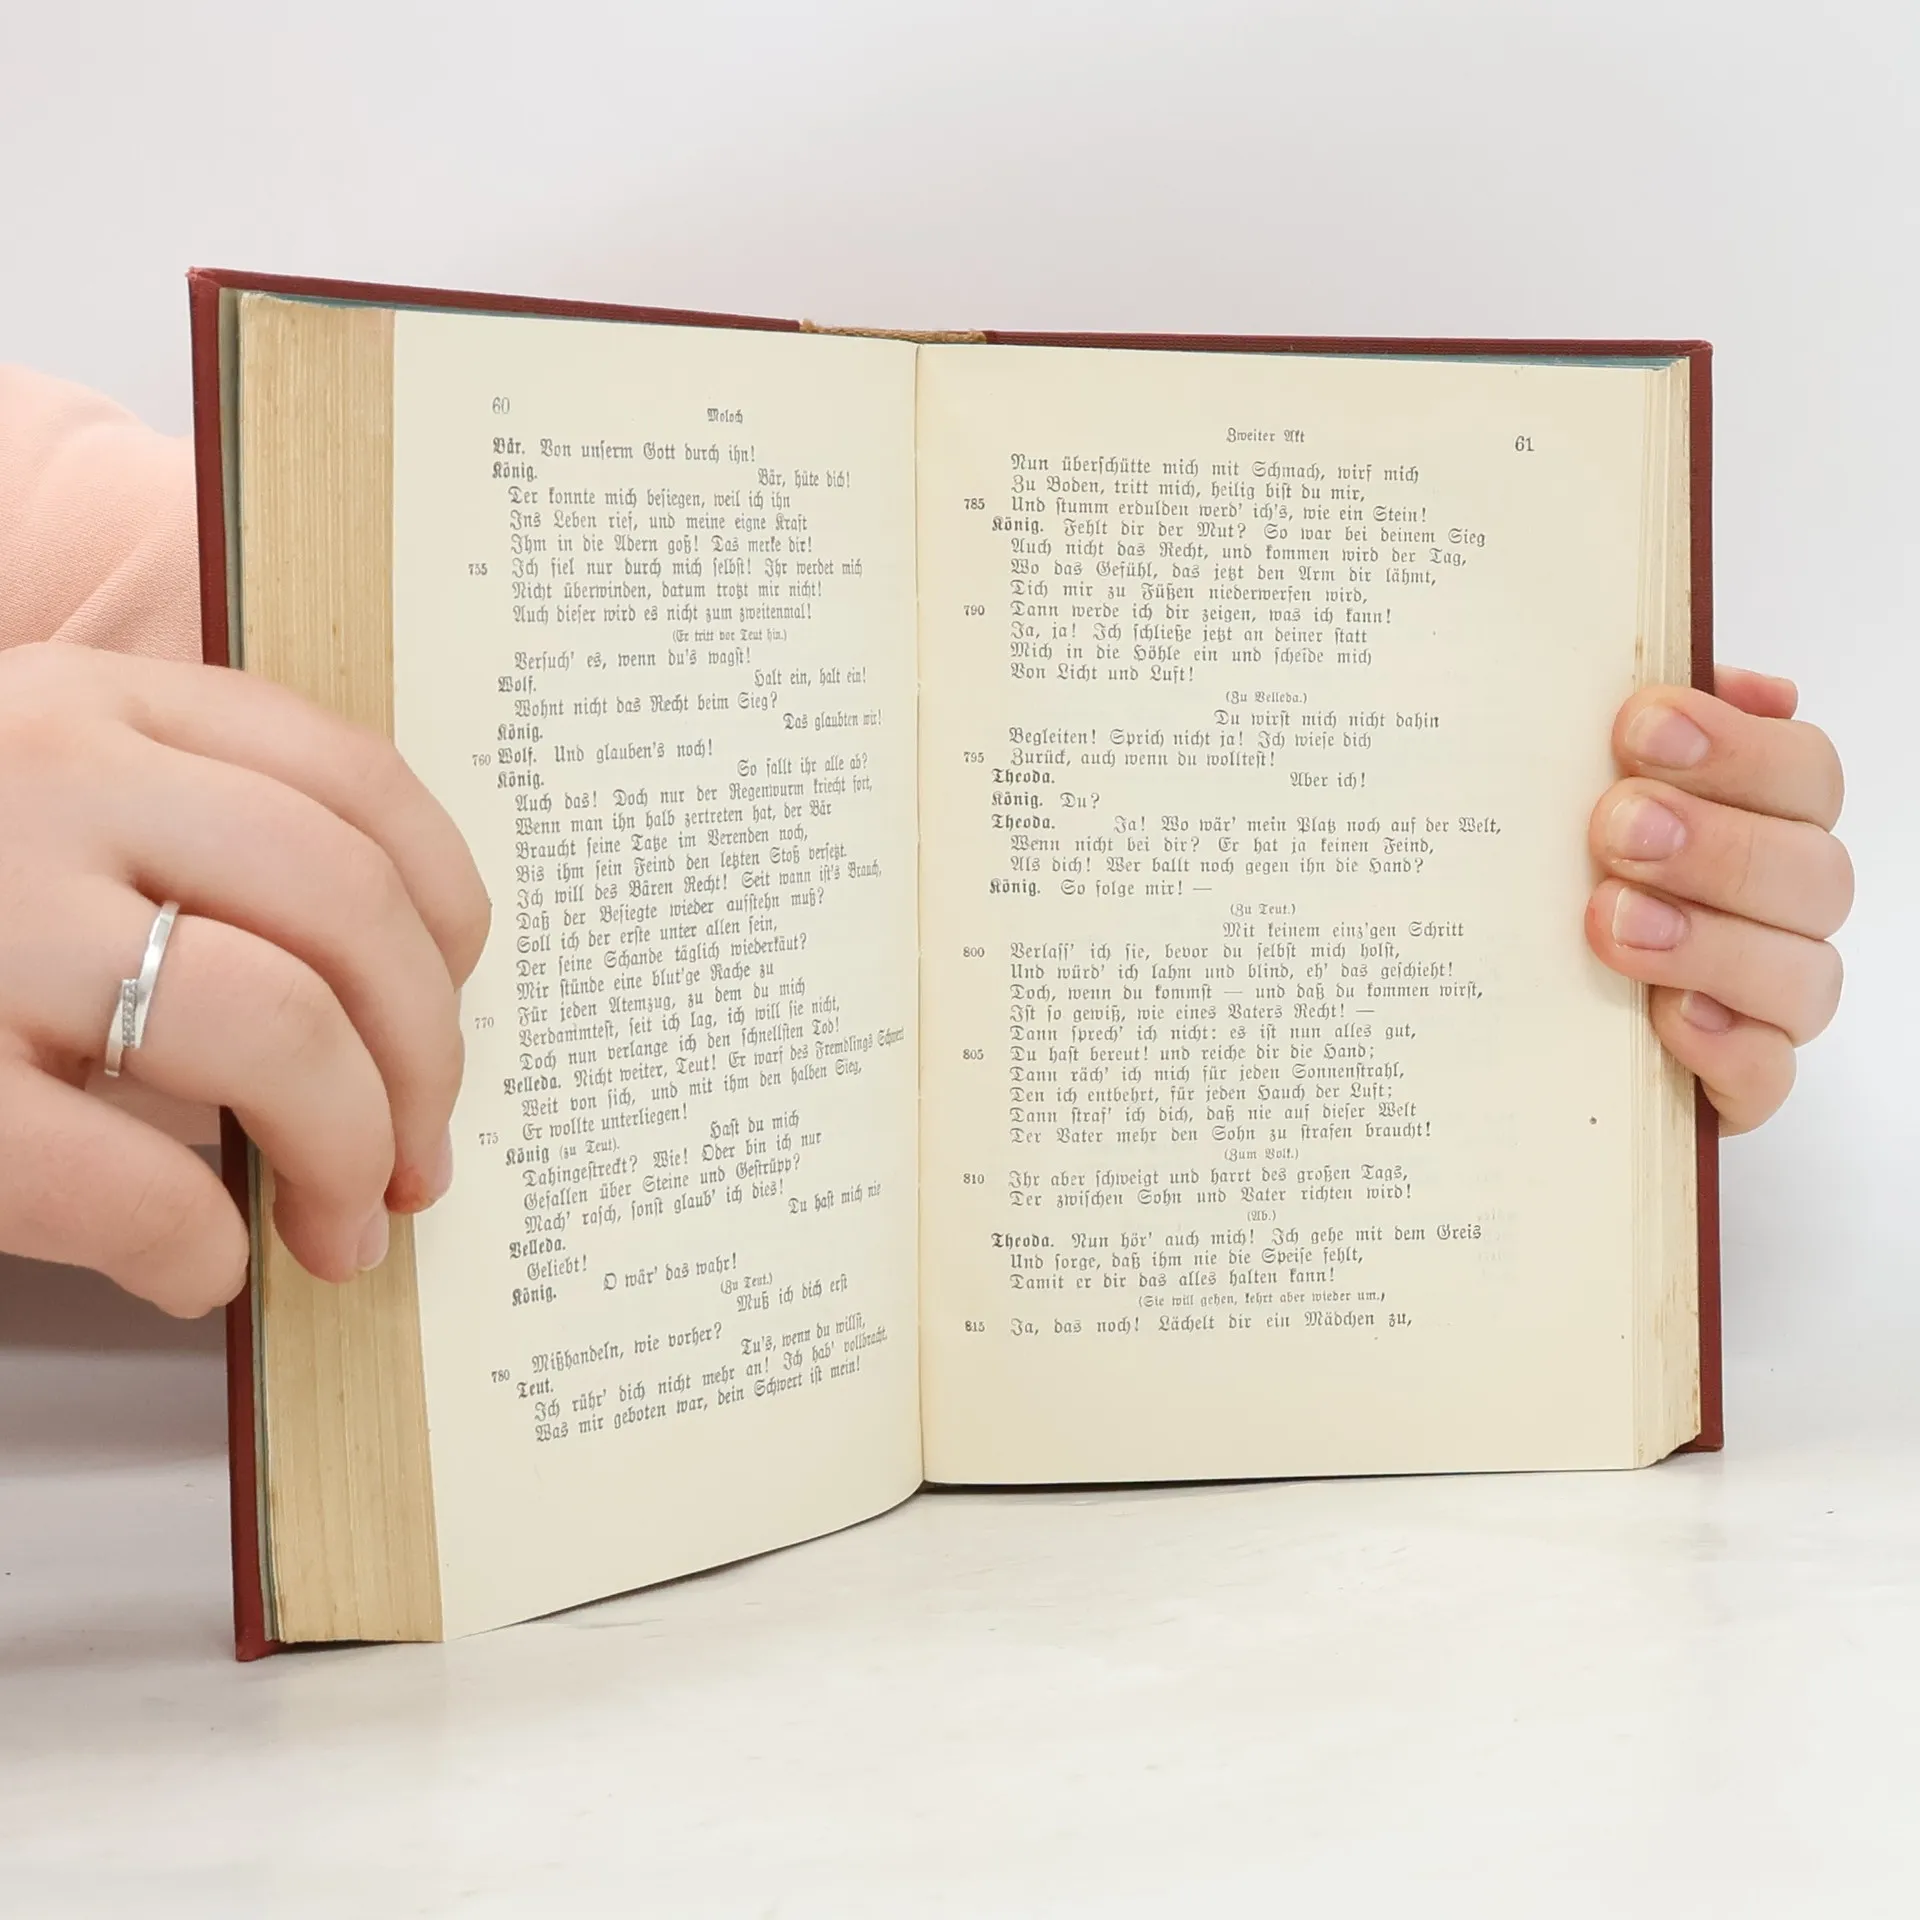 60
Moloch
Bär. Von unserm Gott durch ihn!
König. Bär, hüte dich!
Der konnte mich besiegen, weil ich ihn
Ins Leben rief, und meine eigne Kraft
Ihm in die Adern goß! Das merke dir!
755 Ich fiel nur durch mich selbst! Ihr werdet mich
Nicht überwinden, darum trotzt mir nicht!
Auch dieser wird es nicht zum zweitenmal!
(Er tritt vor Teut hin.)
Versuch' es, wenn du's wagst!
Wolf. Halt ein, halt ein!
Wohnt nicht das Recht beim Sieg?
König. Das glaubten wir!
760 Wolf. Und glauben's noch!
König. So fallt ihr alle ab?
Auch das! Doch nur der Regenwurm kriecht fort,
Wenn man ihn halb zertreten hat, der Bär
Braucht seine Tatze im Verenden noch,
Bis ihm sein Feind den letzten Stoß versetzt.
Ich will des Bären Recht! Seit wann ist's Brauch,
Daß der Besiegte wieder aufstehn muß?
Soll ich der erste unter allen sein,
Der seine Schande täglich wiederkäut?
Mir stünde eine blut'ge Rache zu
770 Für jeden Atemzug, zu dem du mich
Verdammtest, seit ich lag, ich will sie nicht,
Doch nun verlange ich den schnellsten Tod!
Velleda. Nicht weiter, Teut! Er warf des Fremdlings Schwert
Weit von sich, und mit ihm den halben Sieg,
775 Er wollte unterliegen!
König (zu Teut). Hast du mich
Dahingestreckt? Wie! Oder bin ich nur
Gefallen über Steine und Gestrüpp?
Mach' rasch, sonst glaub' ich dies!
Velleda. Du hast mich nie
Geliebt!
König. O wär' das wahr!
(Zu Teut.)
Muß ich dich erst
780 Mißhandeln, wie vorher?
Teut. Tu's, wenn du willst,
Ich rühr' dich nicht mehr an! Ich hab' vollbracht,
Was mir geboten war, dein Schwert ist mein!
Zweiter Akt
61
Nun überschütte mich mit Schmach, wirf mich
Zu Boden, tritt mich, heilig bist du mir,
785 Und stumm erdulden werd' ich's, wie ein Stein!
König. Fehlt dir der Mut? So war bei deinem Sieg
Auch nicht das Recht, und kommen wird der Tag,
Wo das Gefühl, das jetzt den Arm dir lähmt,
Dich mir zu Füßen niederwerfen wird,
790 Dann werde ich dir zeigen, was ich kann!
Ja, ja! Ich schließe jetzt an deiner statt
Mich in die Höhle ein und scheide mich
Von Licht und Luft!
(Zu Velleda.)
Du wirst mich nicht dahin
Begleiten! Sprich nicht ja! Ich wiese dich
795 Zurück, auch wenn du wolltest!
Theoda. Aber ich!
König. Du?
Theoda. Ja! Wo wär' mein Platz noch auf der Welt,
Wenn nicht bei dir? Er hat ja keinen Feind,
Als dich! Wer ballt noch gegen ihn die Hand?
König. So folge mir! —
(Zu Teut.)
Mit keinem einz'gen Schritt
800 Verlass' ich sie, bevor du selbst mich holst,
Und würd' ich lahm und blind, eh' das geschieht!
Doch, wenn du kommst — und daß du kommen wirst,
Ist so gewiß, wie eines Vaters Recht! —
Dann sprech' ich nicht: es ist nun alles gut,
805 Du hast bereut! und reiche dir die Hand;
Dann räch' ich mich für jeden Sonnenstrahl,
Den ich entbehrt, für jeden Hauch der Luft;
Dann straf' ich dich, daß nie auf dieser Welt
Der Vater mehr den Sohn zu strafen braucht!
(Zum Volk.)
810 Ihr aber schweigt und harrt des großen Tags,
Der zwischen Sohn und Vater richten wird!
(Ab.)
Theoda. Nun hör' auch mich! Ich gehe mit dem Greis
Und sorge, daß ihm nie die Speise fehlt,
Damit er dir das alles halten kann!
(Sie will gehen, kehrt aber wieder um.)
815 Ja, das noch! Lächelt dir ein Mädchen zu,